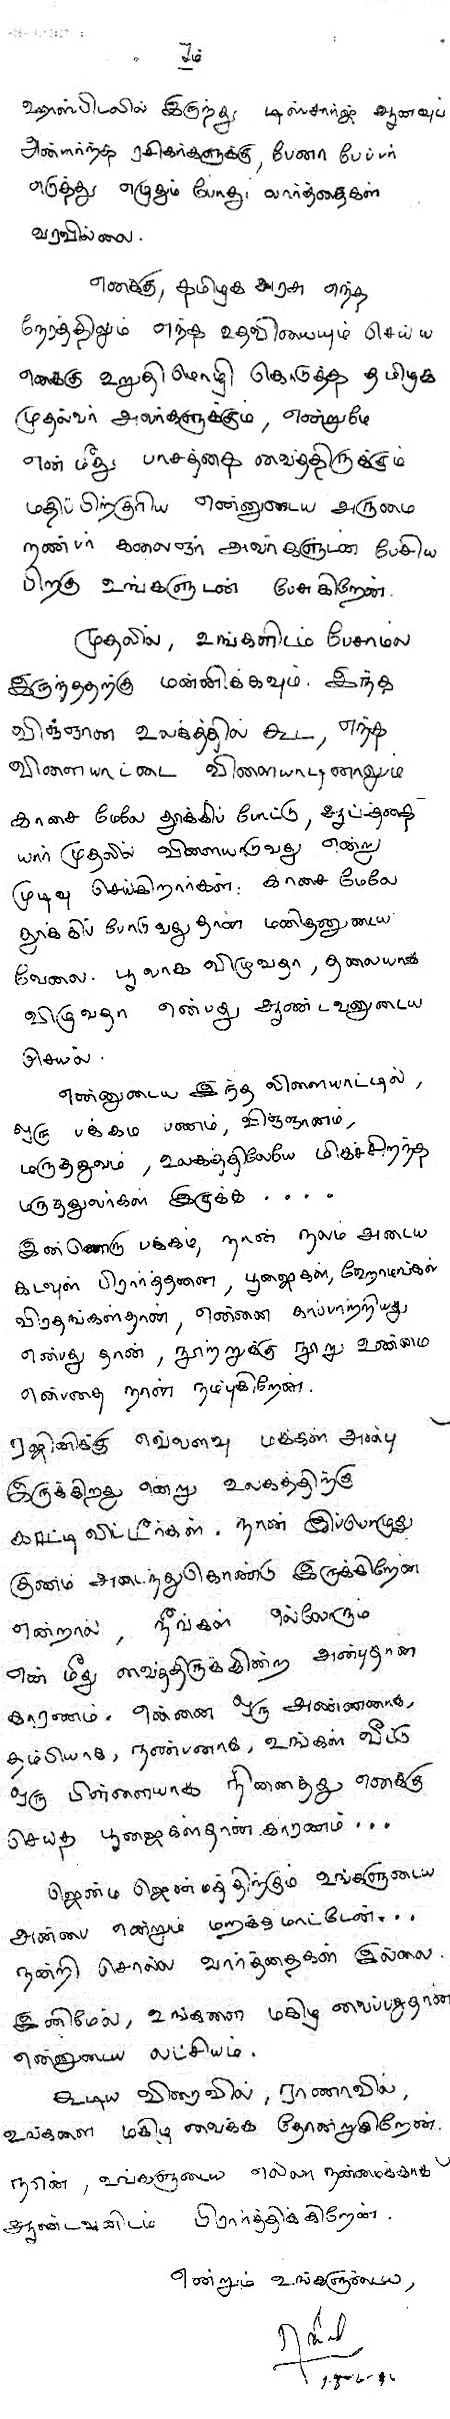 ஓம்
ஹாஸ்பிடலில் இருந்து டிஸ்சார்ஜ் ஆனவுடன்
அன்பார்ந்த ரசிகர்களுக்கு, பேனா பேப்பர்
எடுத்து எழுதும் போது வார்த்தைகள்
வரவில்லை.
எனக்கு, தமிழக அரசு எந்த
நேரத்திலும் எந்த உதவியையும் செய்ய
எனக்கு உறுதிமொழி கொடுத்த தமிழக
முதல்வர் அவர்களுக்கும், என்றுமே
என் மீது பாசத்தை வைத்திருக்கும்
மதிப்பிற்குரிய என்னுடைய அருமை
நண்பர் கலைஞர் அவர்களுடன் பேசிய
பிறகு உங்களுடன் பேசுகிறேன்.
முதலில், உங்களிடம் பேசாமல்
இருந்ததற்கு மன்னிக்கவும். இந்த
விஞ்ஞான உலகத்தில் கூட, எந்த
விளையாட்டை விளையாடினாலும்
காசை மேலே தூக்கிப் போட்டு, ஆட்டத்தை
யார் முதலில் விளையாடுவது என்று
முடிவு செய்கிறார்கள். காசை மேலே
தூக்கிப் போடுவதுதான் மனிதனுடைய
வேலை. பூவாக விழுவதா, தலையாக
விழுவதா என்பது ஆண்டவனுடைய
செயல்.
என்னுடைய இந்த விளையாட்டில்,
ஒரு பக்கம் பணம், விஞ்ஞானம்,
மருத்துவம், உலகத்திலேயே மிகச்சிறந்த
மருத்துவர்கள் இருக்க ....
இன்னொரு பக்கம், நான் நலம் அடைய
கடவுள் பிரார்த்தனை, பூஜைகள், ஹோமங்கள்
விரதங்கள்தான், என்னை காப்பாற்றியது
என்பது தான், நூற்றுக்கு நூறு உண்மை
என்பதை நான் நம்புகிறேன்.
ரஜினிக்கு எவ்வளவு மக்கள் அன்பு
இருக்கிறது என்று உலகத்திற்கு
காட்டி விட்டீர்கள். நான் இப்பொழுது
குணம் அடைந்துகொண்டு இருக்கிறேன்
என்றால், நீங்கள் எல்லோரும்
என் மீது வைத்திருக்கின்ற அன்புதான்
காரணம். என்னை ஒரு அண்ணனாக,
தம்பியாக, நண்பனாக, உங்கள் வீட்டு
ஒரு பிள்ளையாக நினைத்து எனக்கு
செய்த பூஜைகள்தான் காரணம் ...
ஜென்ம ஜென்மத்திற்கும் உங்களுடைய
அன்பை என்றும் மறக்கமாட்டேன்...
நன்றி சொல்ல வார்த்தைகள் இல்லை.
இனிமேல், உங்களை மகிழ வைப்பதுதான்
என்னுடைய லட்சியம்.
கூடிய விரைவில், ராணாவில்,
உங்களை மகிழ வைக்க தோன்றுகிறேன்.
நான், உங்களுடைய எல்லா நன்மைக்காக
ஆண்டவனிடம் பிரார்த்திக்கிறேன்.
என்றும் உங்களுடைய,